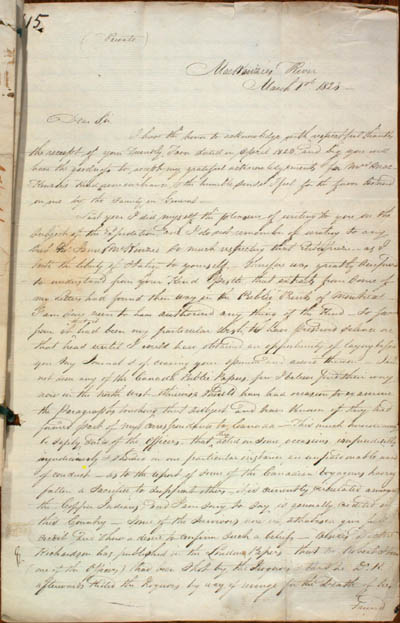 15.
(Private)
MacKenzies River
March 1st 1824
Dear Sir
I have the honor to acknowledge with respectful thanks
the receipt of your friendly favor dated in April 1823 and beg you will
have the goodness to accept my grateful acknowledgements for Mrs
remembrance & the humble sense I feel for the favor
on me by the family in
Last year I did myself the pleasure of writing to you on the
subject of the Expedition and I do not remember of writing to any
but the Honble Mr McKenzie so much respecting that as I
took the liberty of stating to yourself. Therefore was greatly
to understand from your kind that extracts from some of
my letters had found their way in the Public Prints of Montreal
I am very sure to have authorised any thing of the kind so far
from it had been my particular wish to have preserved silence on
that head until I could have obtained an opportunity of laying before
you my Journal & of craving your opinion and advice thereon
not seen any of the Canada Public Papers, for I believe find their way
now in the North West otherwise should have had occasion to examine
the Paragraphs touching that subject and have known if they had
formed part of my correspondence to Canada — This much however
I safely of the officers, that acted on some occasions imprudently
injudiciously & showed in one particular instance an unpardonable want
of conduct — as to the report of some of the Canadian voyageurs having
fallen a sacrifice to support others is currently circulated amongst
the Copper Indians and I am sorry to say is generally credited in
this Country — some of the survivors now in Athabasca
and show a desire to confirm such a belief — Doctor
Richardson has published in the London Papers that Mr Robert Hood
(one of the officers) that was shot by the Iroquois & that he Dr R.
afterwards killed the Iroquois by way of revenge for the death of his
friend